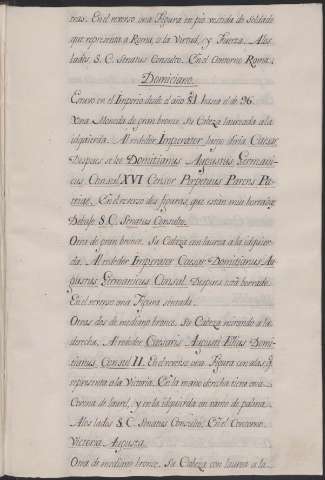 tras. En el reverso una Figura en pie vestida de Soldado
que representa a Roma, o la Virtud, y Fuerza. A los
lados S. C. Senatus Consulto. En el Contorno Roma.
Domiciano.
Estuvo en el Imperio desde el año 81. hasta el de 96.
Una Moneda de gran bronce. Su Cabeza laureada a la
izquierda. Al rededor Imperator, luego diria Caesar
Despues se lee Domitianus Augustus Germani-
cus Consul XVI Censor Perpetuus Parens Pa-
triae. En el reverso dos figuras, que estan mui borradas
Debajo S. C. Senatus Consulto.
Otra de gran bronce. Su Cabeza con laurea a la izquier-
da. Al rededor Imperator Caesar Domitianus Au-
gustus Germanicus Consul. Despues está borrado.
En el reverso una Figura sentada.
Otras dos de mediano bronce. Su Cabeza mirando a la
derecha. Al rededor Caesaris Augusti Filius Domi-
tianus Consul II. En el reverso una Figura con alas, q.
representa a la Victoria. En la mano derecha tiene una
Corona de laurel, y en la izquierda un ramo de palma.
A los lados S. C. Senatus Consulto. En el Contorno
Victoria Augusta.
Otra de mediano bronce. Su Cabeza con laurea a la